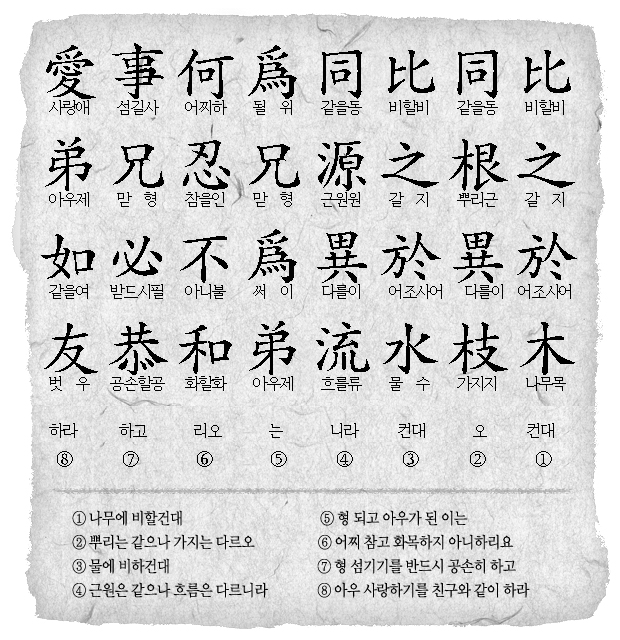 愛 事 何 爲 同 比 同 比
사랑애 섬길사 어찌하 될 위 같을동 비할비 같을동 비할비
弟 兄 忍 兄 源 之 根 之
아우제 맏 형 참을인 맏 형 근원원 갈 지 뿌리근 갈 지
如 必 不 爲 異 於 異 於
같을여 받드시필 아니불 써 이 다를이 어조사어 다를이 어조사어
友 恭 和 弟 流 水 枝 木
벗 우 공손할공 화할화 아우제 흐를류 물 수 가지지 나무목
하라 하고 리오 는 니라 컨대 오 컨대
⑧ ⑦ ⑥ ⑤ ④ ③ ② ①
① 나무에 비할건대
② 뿌리는 같으나 가지는 다르오
③ 물에 비하건대
④ 근원은 같으나 흐름은 다르니라
⑤ 형 되고 아우가 된 이는
⑥ 어찌 참고 화목하지 아니하리요
⑦ 형 섬기기를 반드시 공손히 하고
⑧ 아우 사랑하기를 친구와 같이 하라